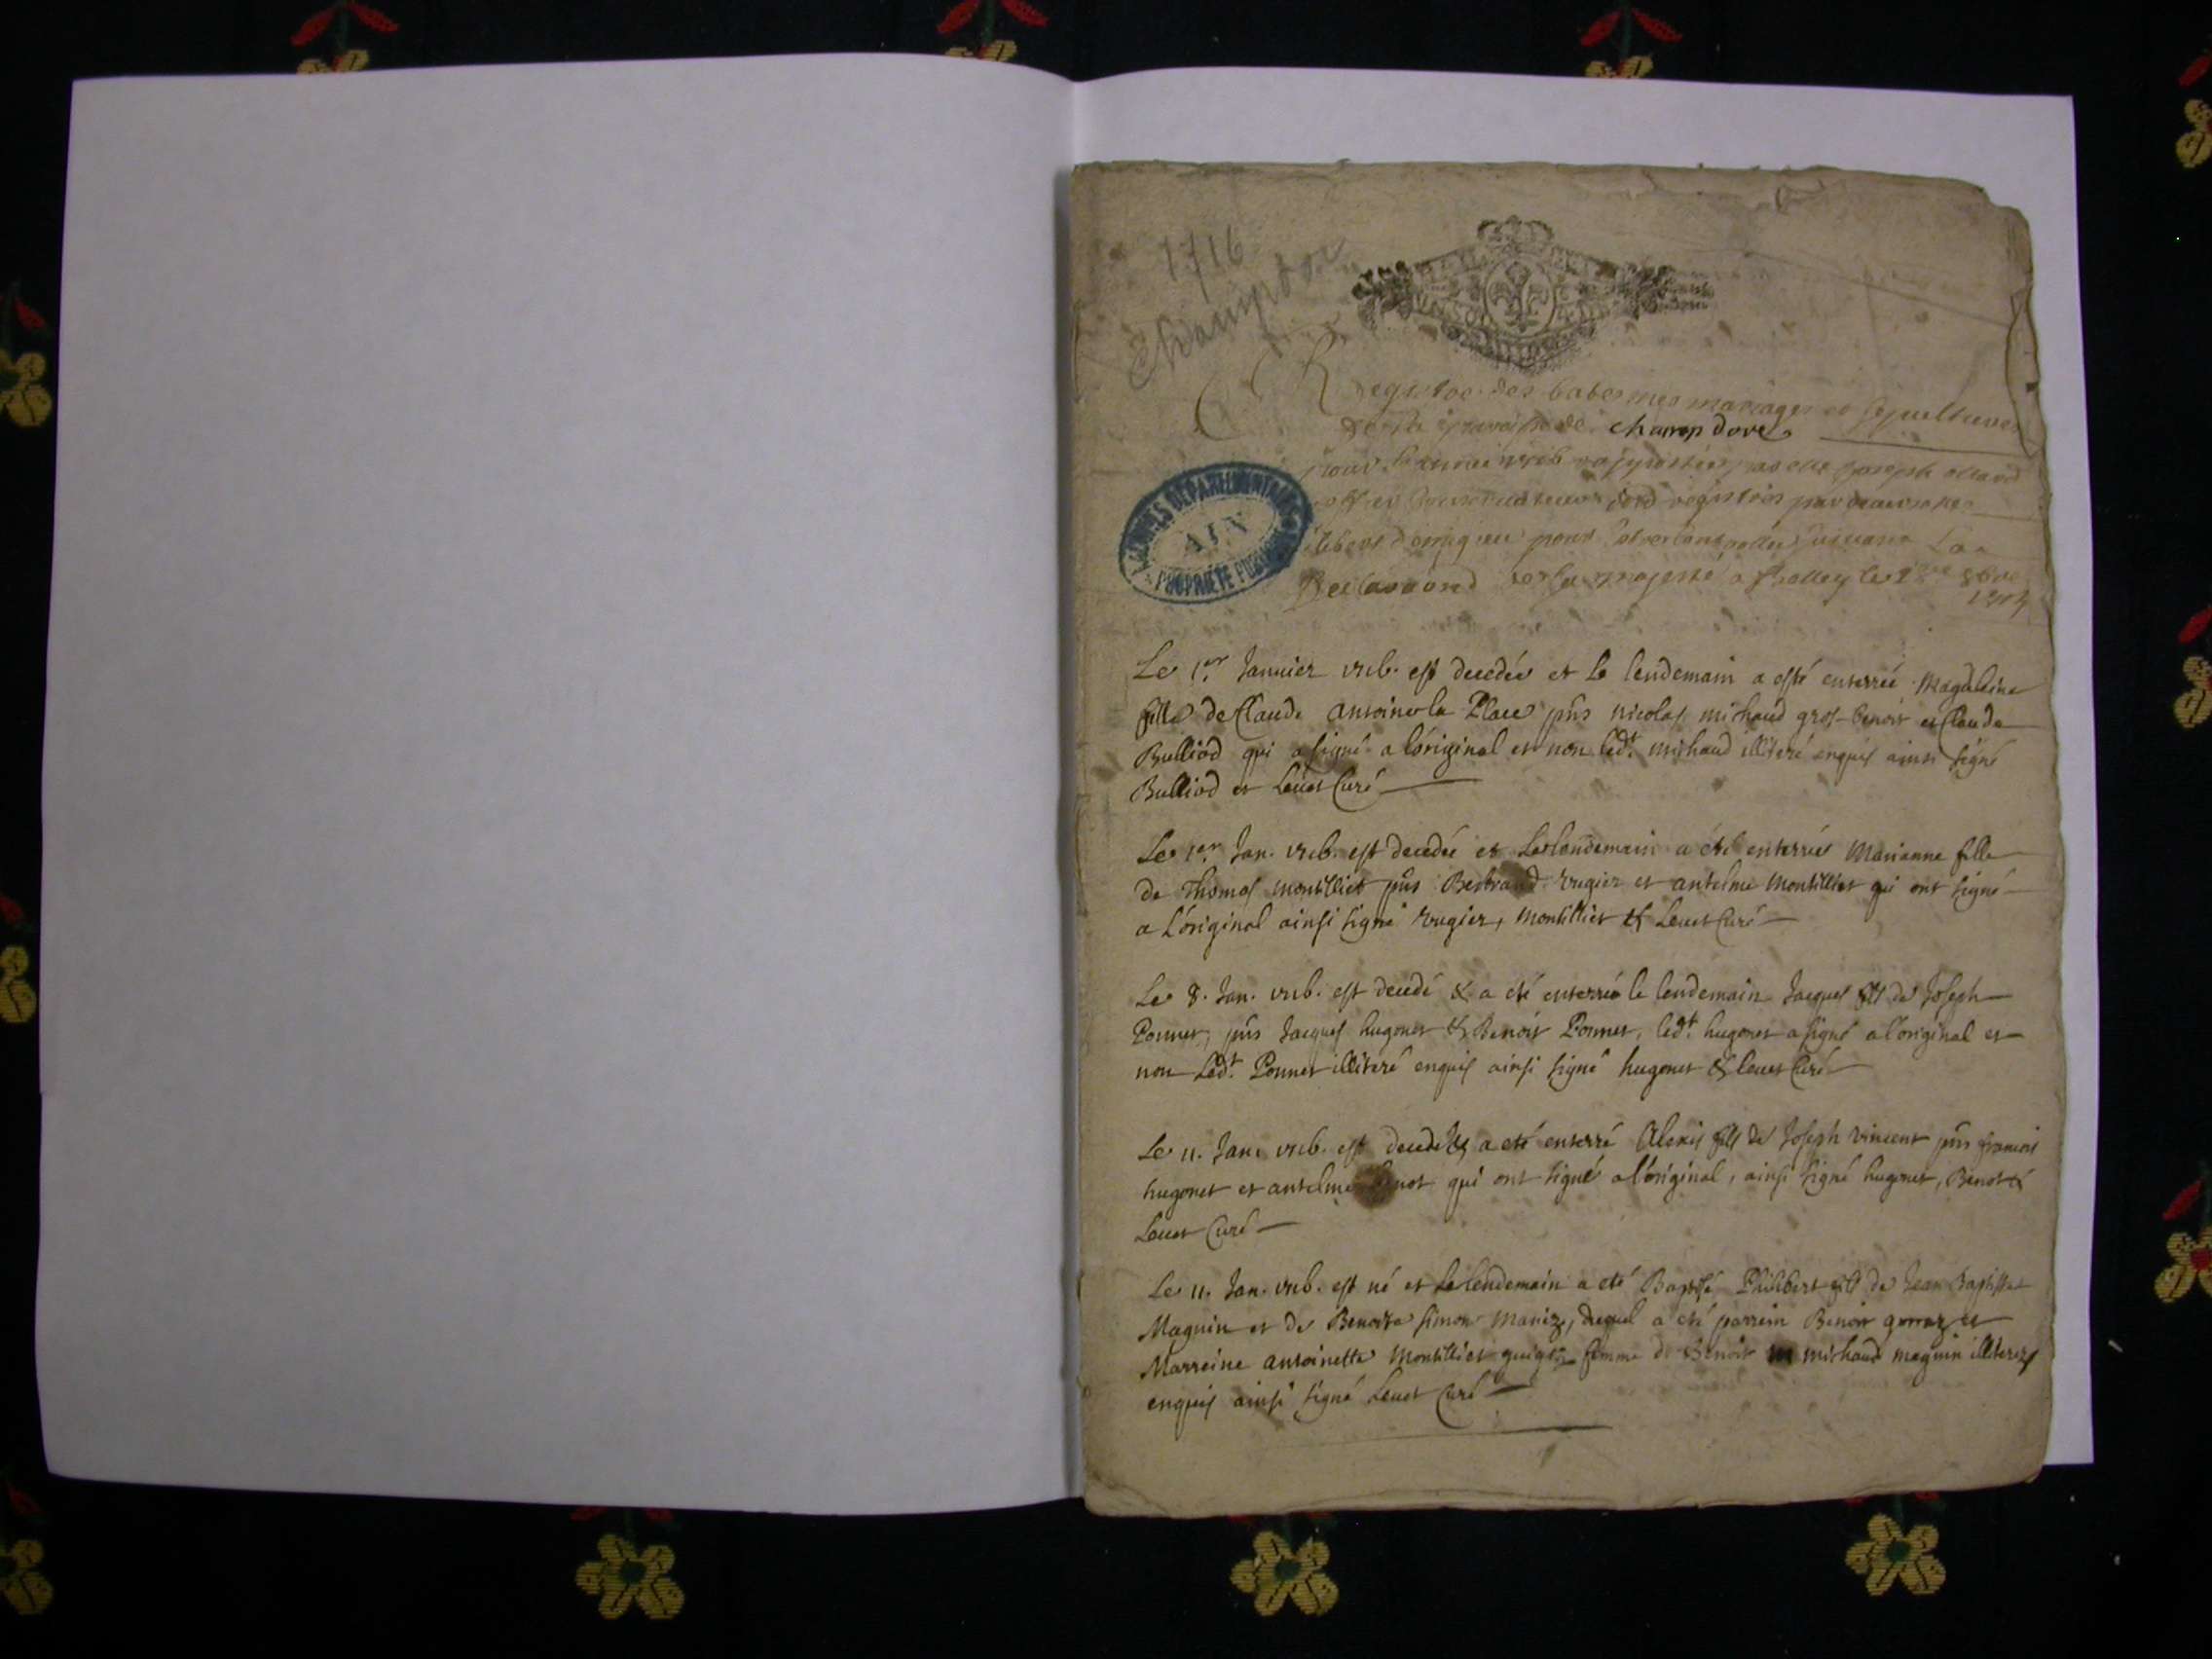 1716
Champdor
Registre des batesmes mariages et sepultures
de la paroisse de champdore
pour l'année 1716
registres par
pour
de sa majesté a Belley le
ARCHIVES DEPARTEMENTALES
AIN
PROPRIETE PUBLIQUE
Le 1.er Januier 1716. est decedée et le lendemain a esté enterrée Magdeleine
fille de Claude Antoine la Place pñs nicolas michaud gros-benoit et Claude
Bulliod qui a signé a l'original et non led.t michaud illiteré enquis ainsi signé
Bulliod et Leuet Curé
Le 1.er Jan. 1716. est decedée et le lendemain a été enterrée Marianne fille
de Thomas montilliet pñs Bertrand rugier et antelme Montilliet qui ont signé
a L'original ainsi signé rugier, montilliet & Leuet Curé
Le 8. Jan. 1716. est decedé & a été enterré le lendemain Jacques fils de Joseph
Ponnet, pñs Jacques hugonet & Benoit Ponnet, led.t hugonet a signé a l'original et
non Led.t Ponnet illiteré enquis ainsi signé hugonet & leuet Curé
Le 11. Jan. 1716. est decedé & a été enterré Alexis fils de Joseph vincent pñs francois
hugonet et antelme benot qui ont signé a l'original, ainsi signé hugonet, Benot &
Leuet Curé
Le 11. Jan. 1716. est né et le lendemain a été Baptisé Philibert fils de Jean Baptiste
Maguin et de Benoite simon mariez, duquel a été parrein Benoit gonnaz et
Marreine antoinette Montilliet femme de Benoit michaud maguin illiterez
enquis ainsi signé Leuet Curé